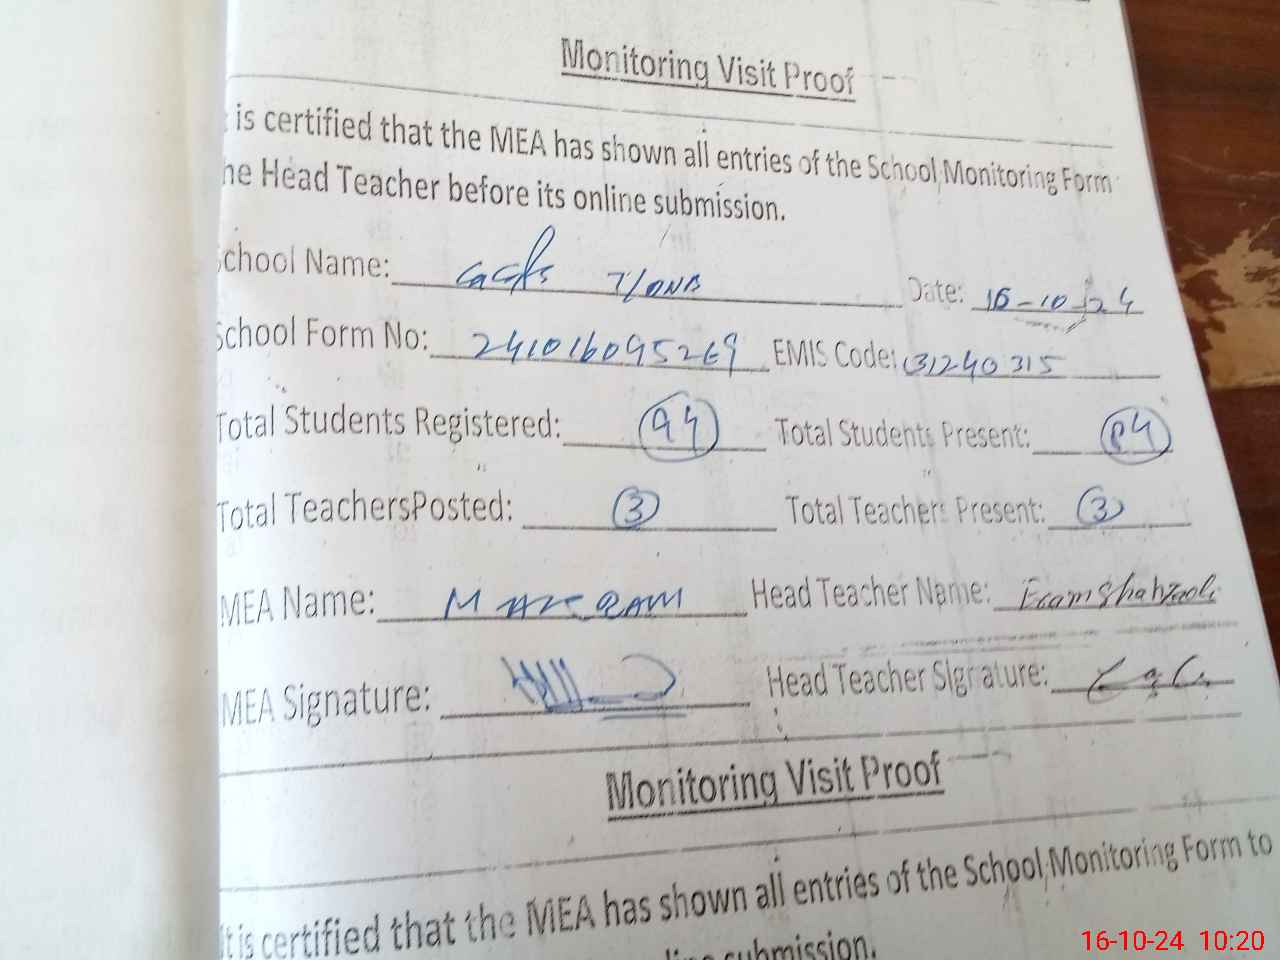 Monitoring Visit Proof
is certified that the MEA has shown all entries of the School Monitoring Form
he Head Teacher before its online submission.
chool Name: Date: 16-10-24
School Form No: 241016095269 EMIS Code: 31240315
Total Students Registered: 94 Total Students Present: 84
Total TeachersPosted: 3 Total Teachers Present: 3
MEA Name: M AKRAM Head Teacher Name: Eram Shahzadi
MEA Signature: Head Teacher Signature:
Monitoring Visit Proof
It is certified that the MEA has shown all entries of the School Monitoring Form to
submission.
16-10-24 10:20